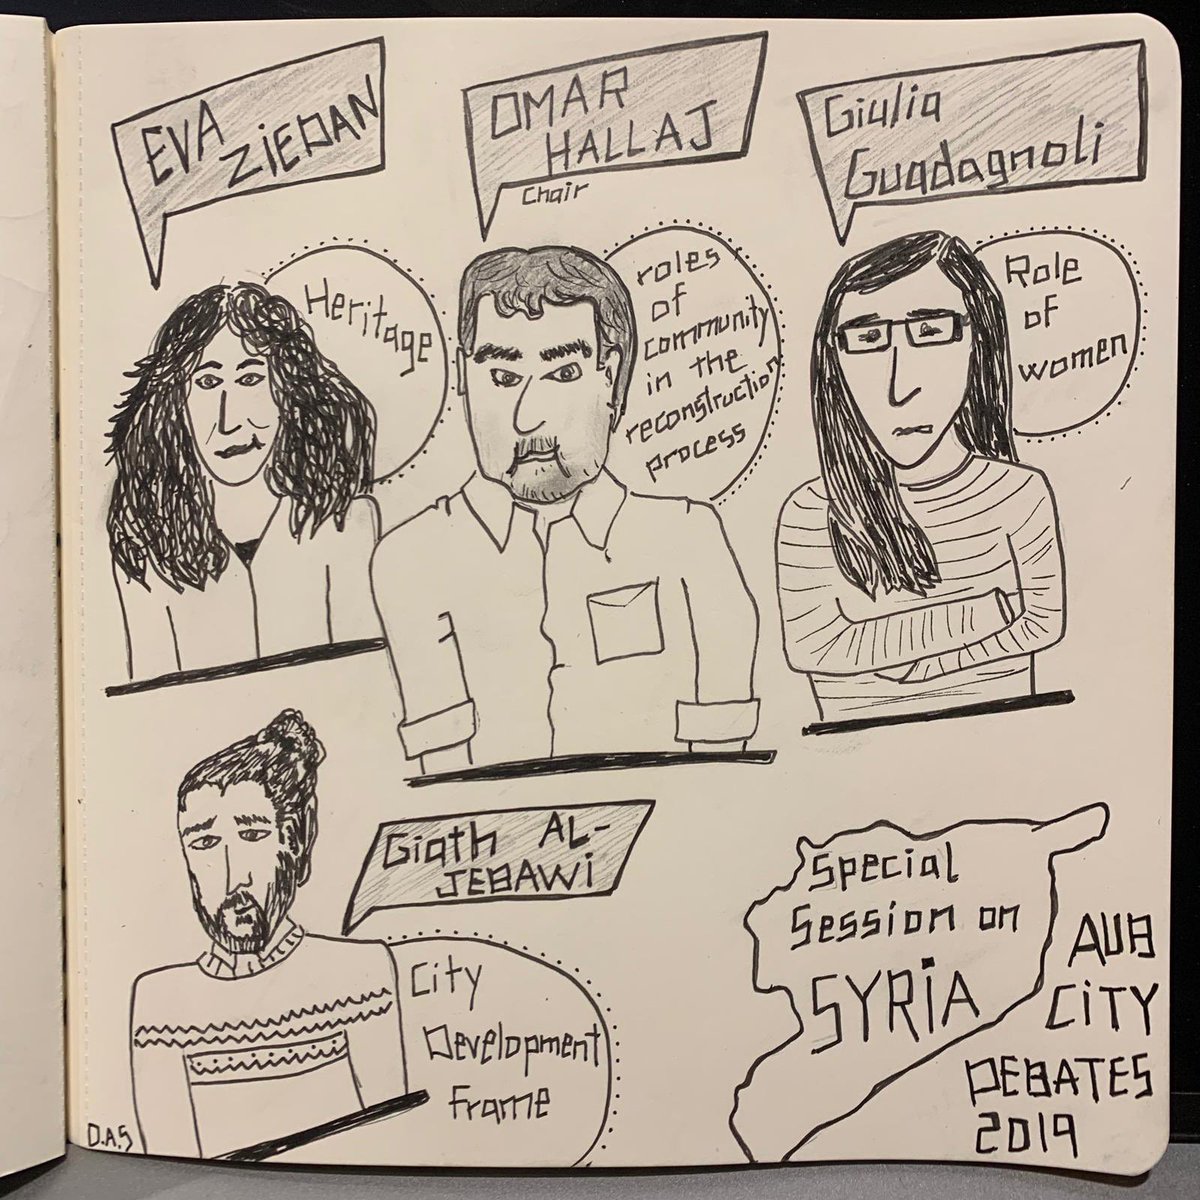 EVA
ZIEDAN
OMAR
HALLAJ
Chair
Giulia
Guadagnoli
Heritage
roles
of
community
in the
reconstruction
process
Role
of
women
Giath AL-
JEBAWi
City
Development
frame
Special
Session on
SYRiA
AUB
CiTY
DEBATES
2019
D.A.S